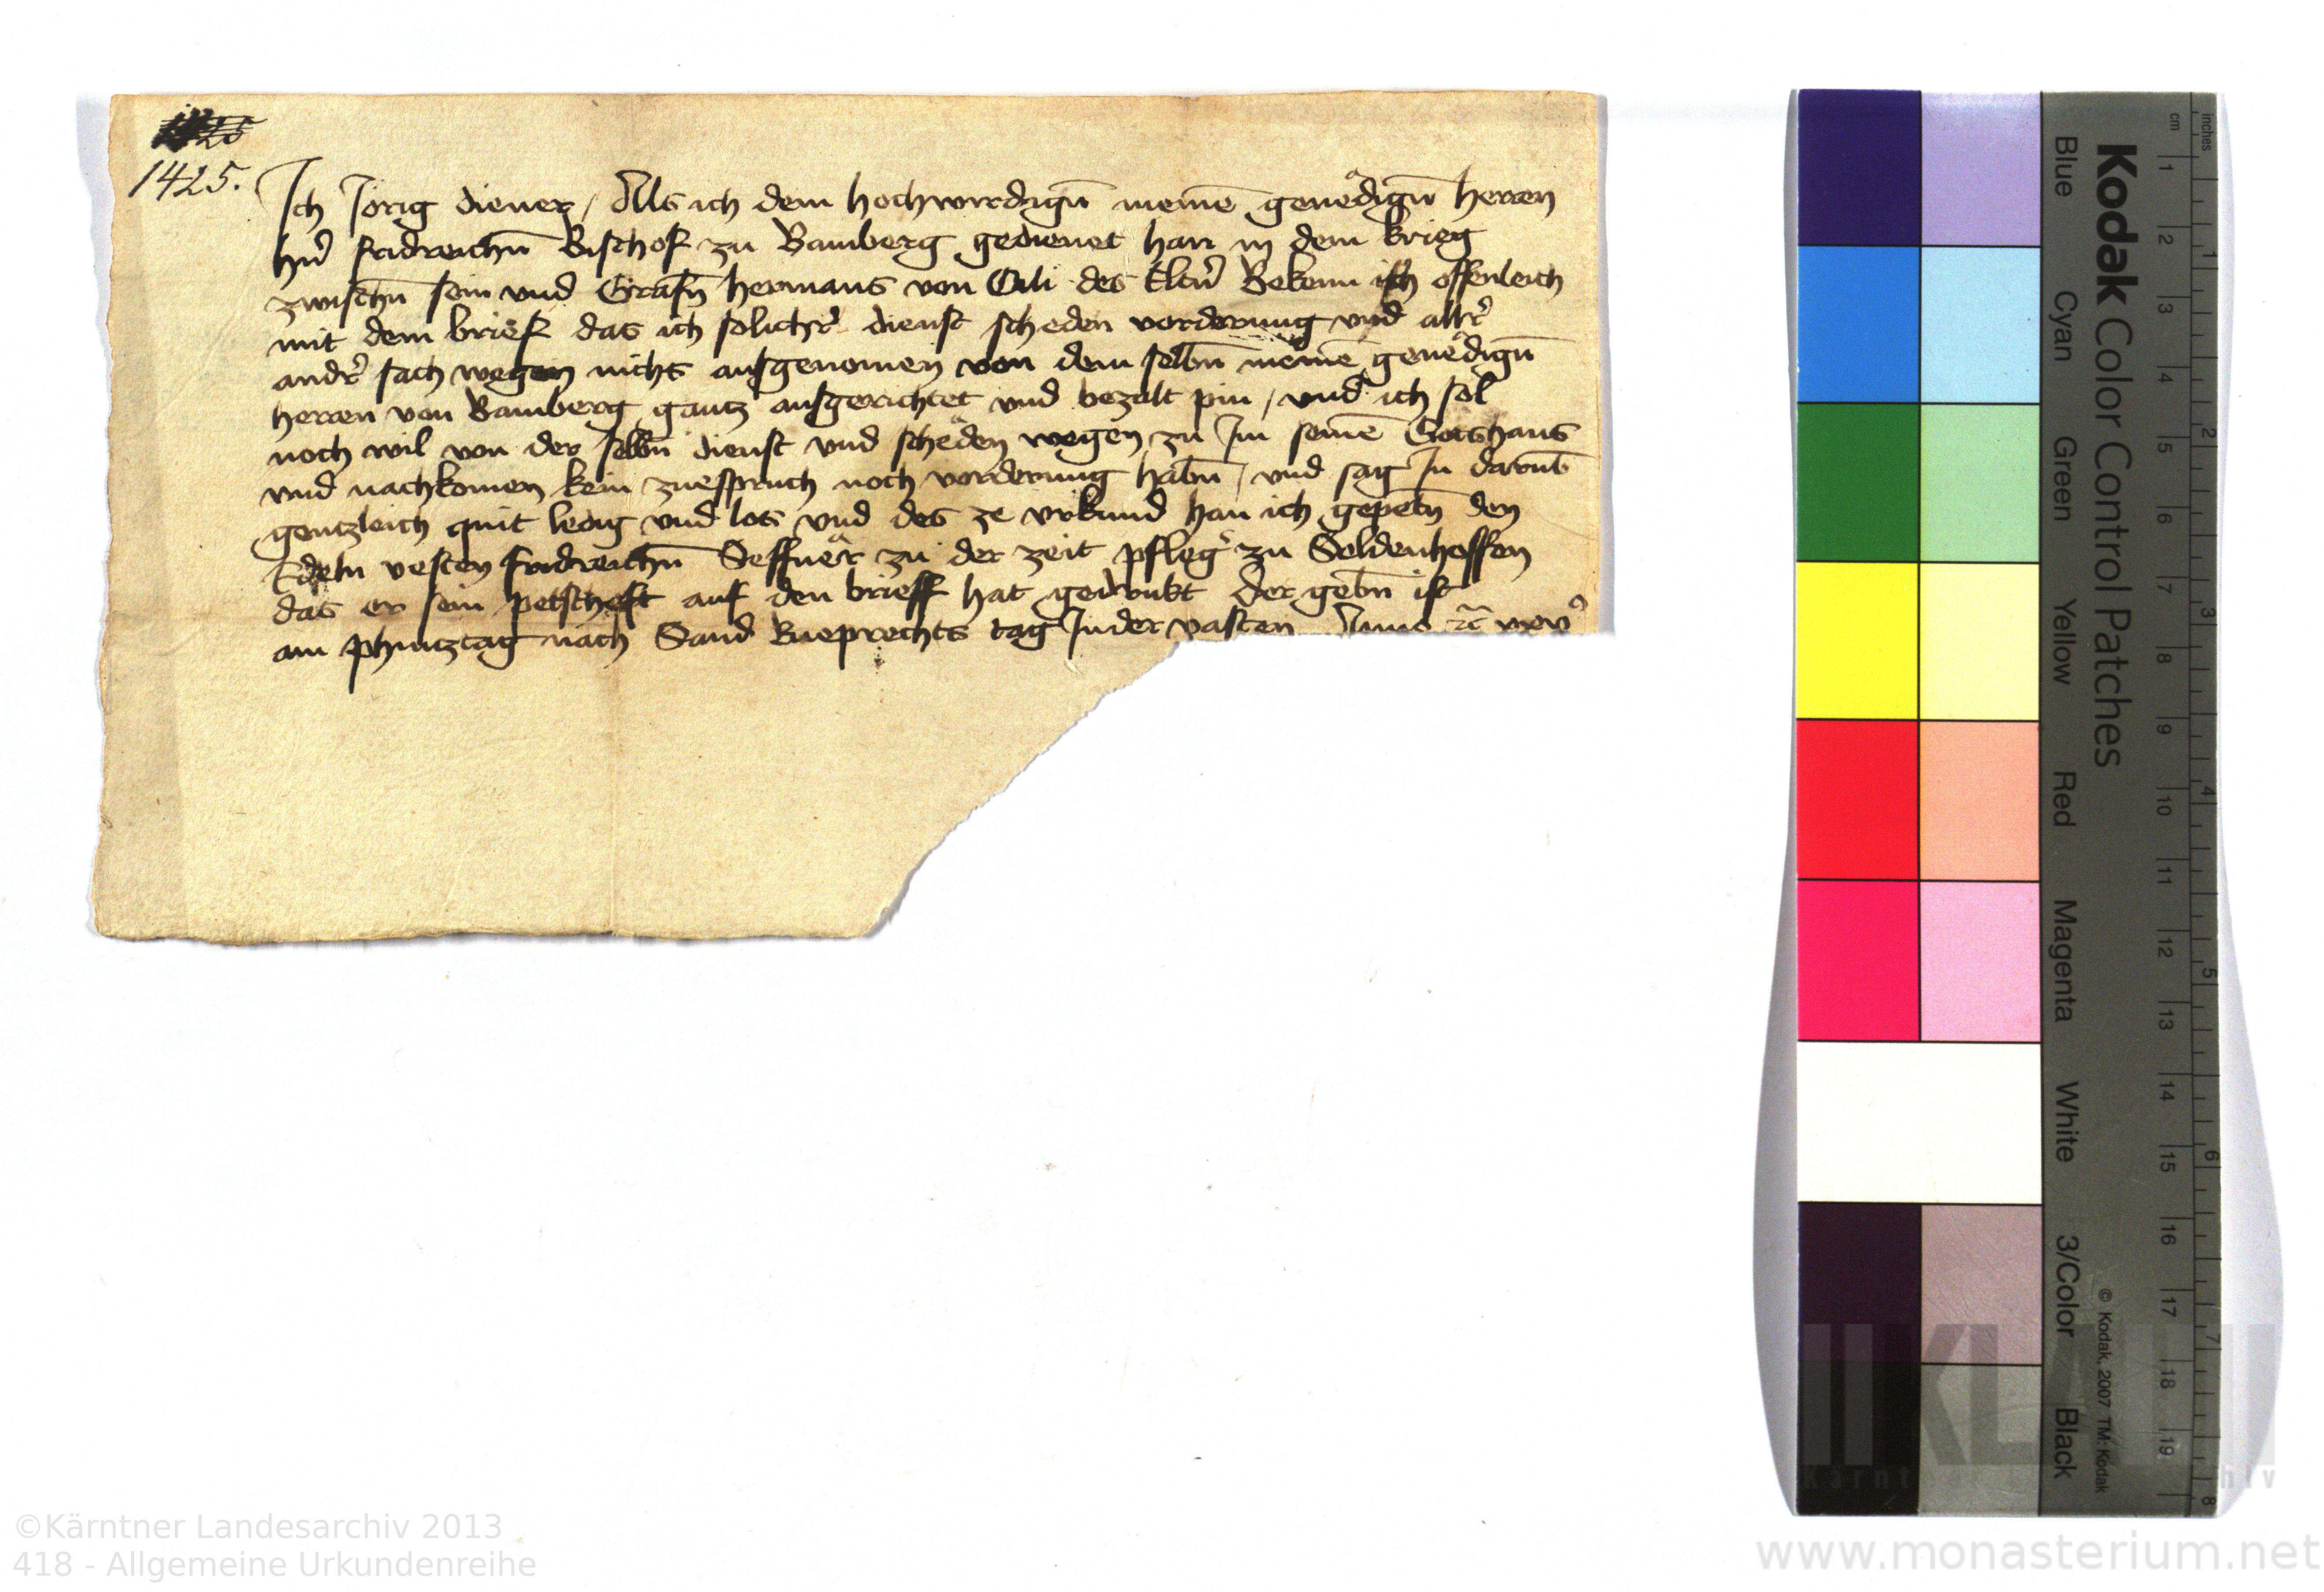 1425.
Ich Jorig diener / Als ich dem hochwirdigū meinē genedigū herren
hrn̄ fridreichn̄ Bischof zu Bamberg gedienet han in dem krieg
zwischn̄ sein und Grafn̄ hermans von Cili des Eltrn̄ Bekenn ich offenleich
mit dem brief das ich solicher dienst scheden vordrung und aller
andr̄ sach wegen nichts ausgenomen von dem selbn̄ meinē genedign̄
herren von Bamberg gantz ausgerichtet und bezalt pin / und ich sol
noch wil von der selbn̄ dienst und scheden wegen zu Im seinē Gotshaus
und nachkomen kein zuespruch noch vordrung habn̄ / und sag In darumb
gentzleich quit ledig und los und des ze urkund han ich gepetn̄ den
Edeln vesten fridreichn̄ Seffner zu der zeit pfleḡ zu Soldenhoffen
das er sein petschaft auf den brieff hat gedrukt Der gebn̄ ist
am phintztag nach Sand Rueprechts tag In der vasten Anno rc̄ xxv
Kodak Color Control Patches
Blue Cyan Green Yellow Red Magenta White 3/Color Black
© Kodak, 2007 TM: Kodak
cm 1 2 3 4 5 6 7 8 9 10 11 12 13 14 15 16 17 18 19
inches 1 2 3 4 5 6 7 8
©Kärntner Landesarchiv 2013
418 - Allgemeine Urkundenreihe
www.monasterium.net